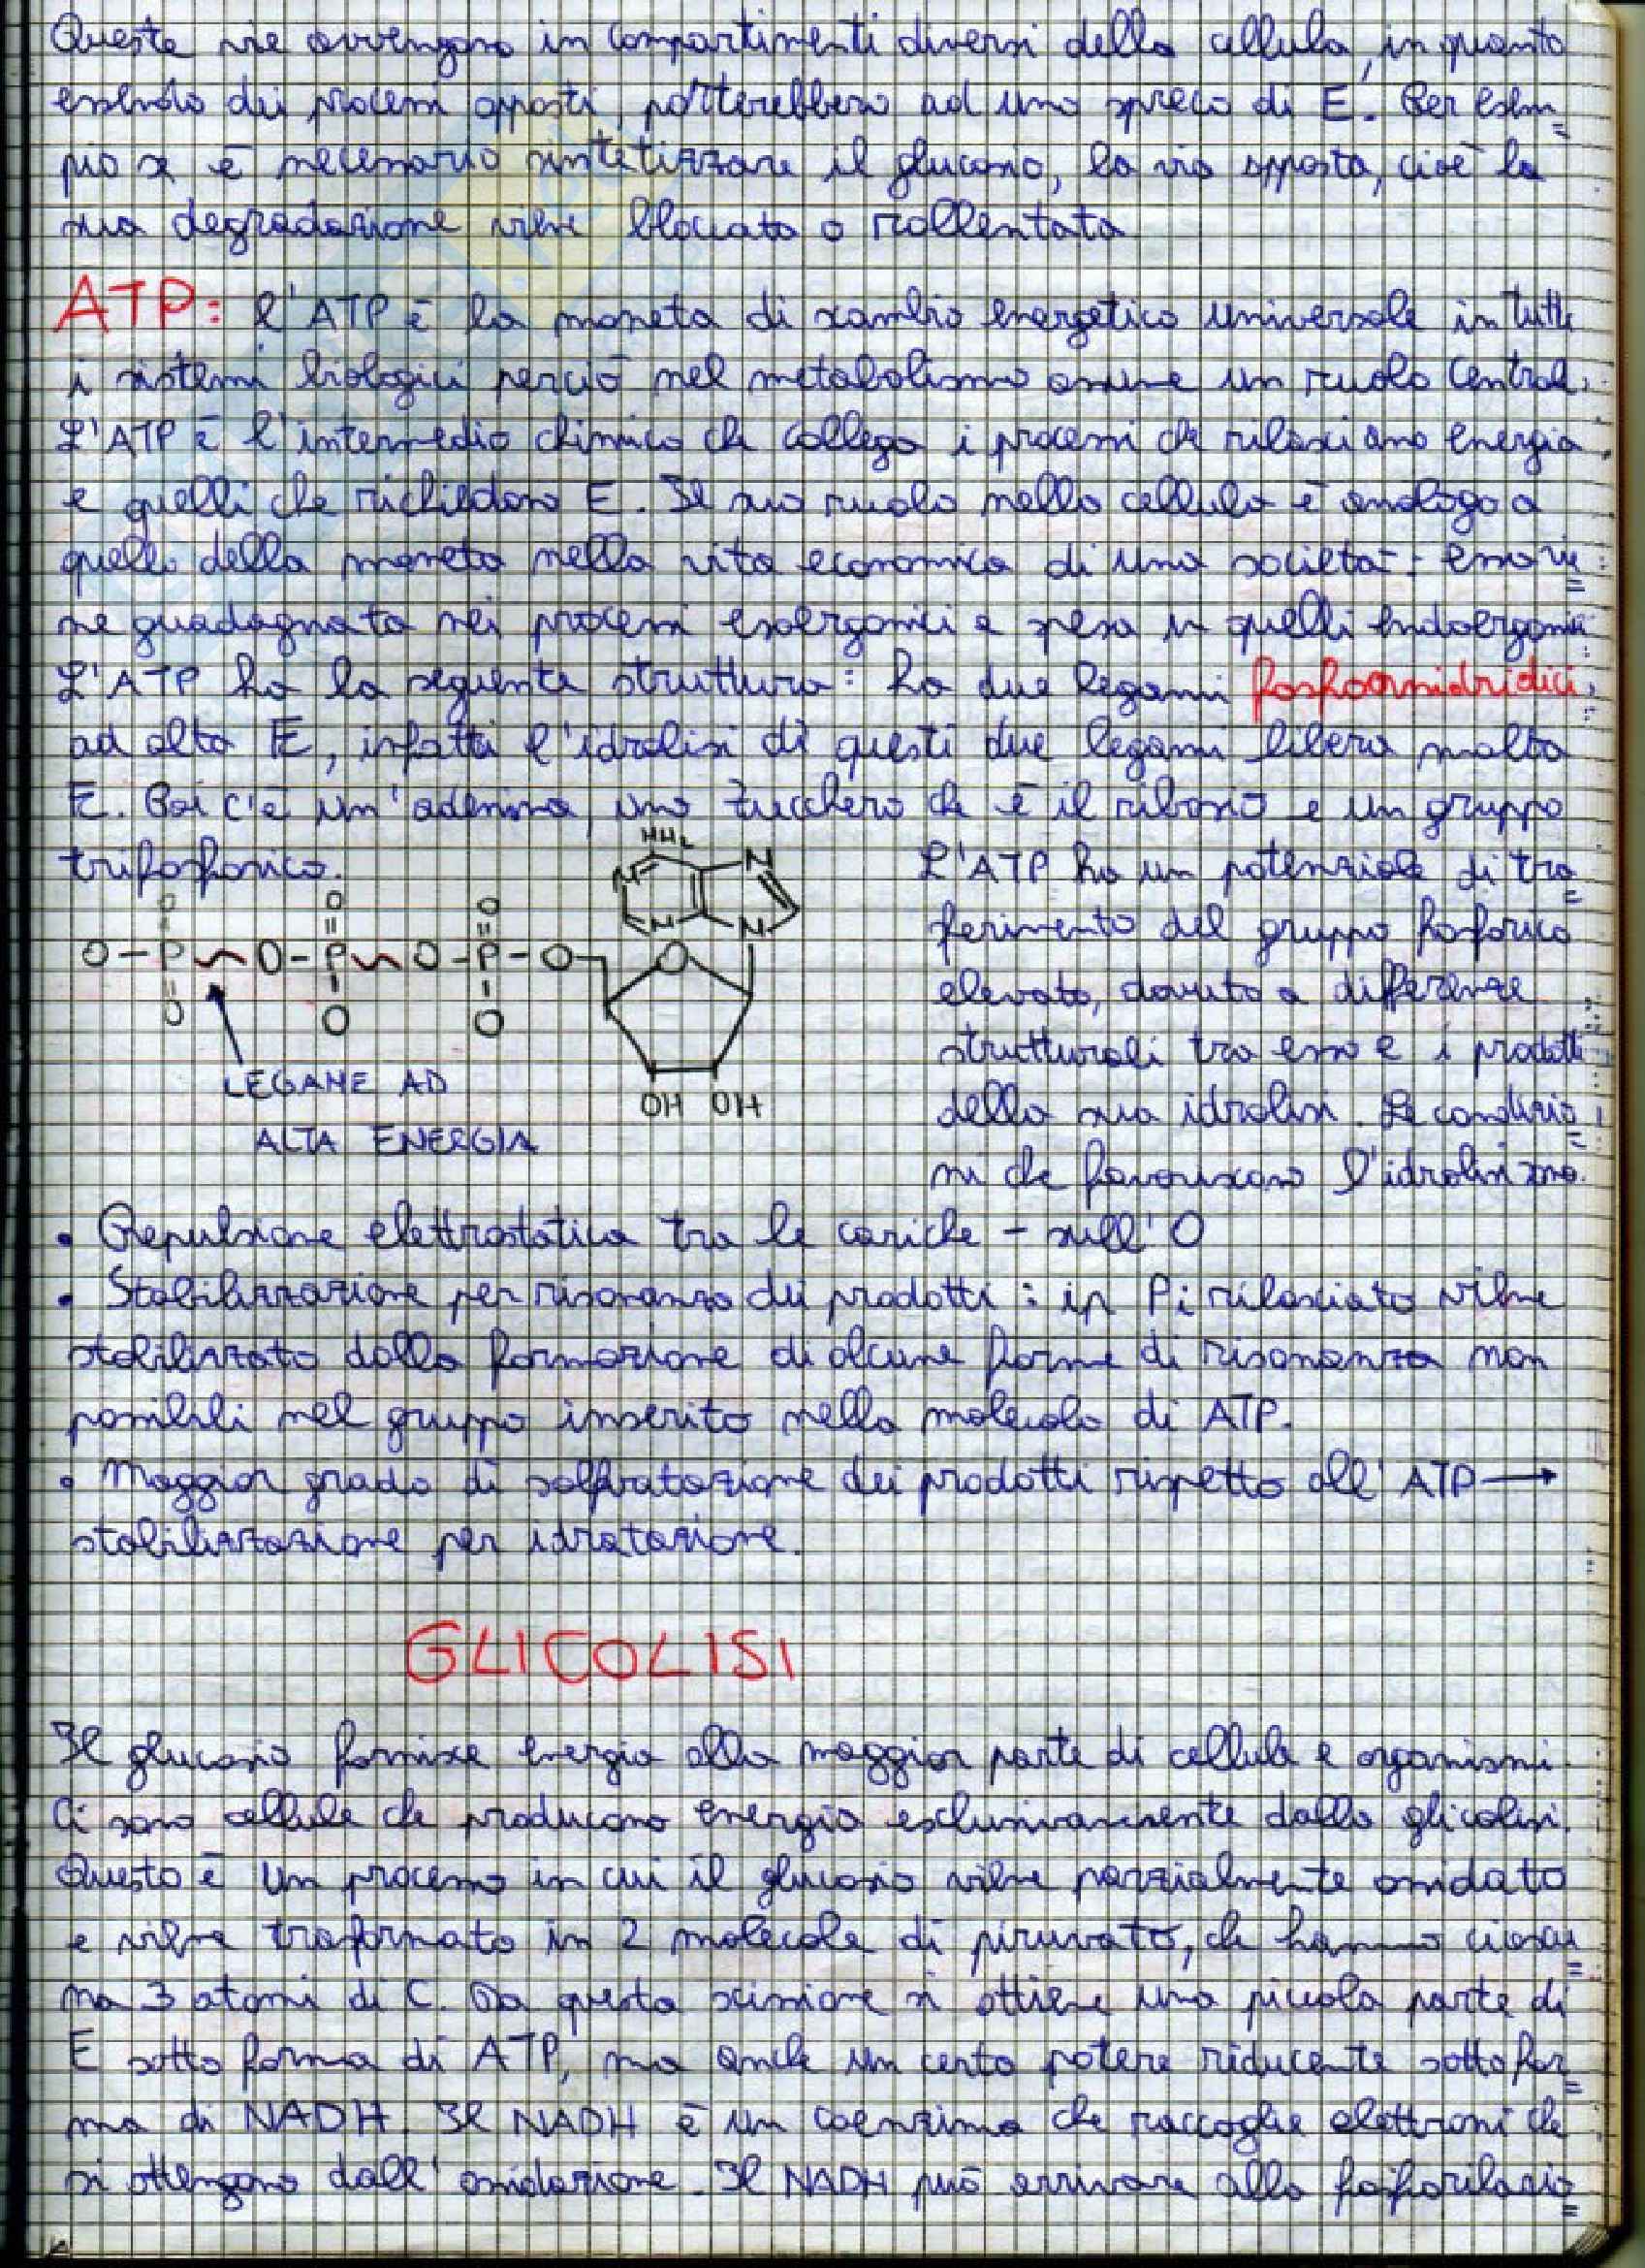 Queste vie avvengono in compartimenti diversi della cellula, in quanto
essendo dei processi opposti, porterebbero ad uno spreco di E. Per esem=
pio se è necessario sintetizzare il glucosio, la via opposta, cioè la
sua degradazione viene bloccata o rallentata
ATP: l'ATP è la moneta di scambio energetico universale in tutti
i sistemi biologici perciò nel metabolismo assume un ruolo centrale.
L'ATP è l'intermedio chimico che collega i processi che rilasciano energia
e quelli che richiedono E. Il suo ruolo nella cellula è analogo a
quello della moneta nella vita economica di una società: essa vie=
ne guadagnata nei processi esoergonici e spesa in quelli endoergonici
L'ATP ha la seguente struttura: ha due legami fosfoanidridici
ad alta E, infatti l'idrolisi di questi due legami libera molta
E. Poi c'è un'adenina, uno zucchero che è il ribosio e un gruppo
trifosforico.
NH2
N
N
N
N
O
O
O
O-P~O-P~O-P-O
O
O
O
O
OH OH
LEGAME AD
ALTA ENERGIA
L'ATP ha un potenziale di tra=
ferimento del gruppo fosforico
elevato, dovuto a differenze
strutturali tra esso e i prodotti
della sua idrolisi. Le condizio=
ni che favoriscono l'idrolisi sono.
• Repulsione elettrostatica tra le cariche - sull'O
• Stabilizzazione per risonanza dei prodotti: in Pi rilasciato viene
stabilizzato dalla formazione di alcune forme di risonanza non
possibili nel gruppo inserito nella molecola di ATP.
• Maggior grado di solvatazione dei prodotti rispetto all'ATP →
stabilizzazione per idratazione.
GLICOLISI
Il glucosio fornisce energia alla maggior parte di cellule e organismi.
Ci sono cellule che producono energia esclusivamente dalla glicolisi.
Questo è un processo in cui il glucosio viene parzialmente ossidato
e viene trasformato in 2 molecole di piruvato, che hanno ciascu=
na 3 atomi di C. Da questa scissione si ottiene una piccola parte di
E sotto forma di ATP, ma anche un certo potere riducente sotto for=
ma di NADH. Il NADH è un coenzima che raccoglie elettroni che
si ottengono dall'ossidazione. Il NADH può arrivare alla fosforilazio=